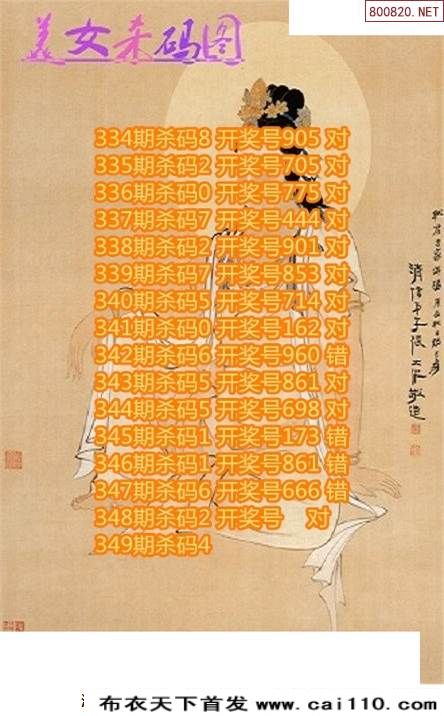 800820.NET
美女杀码图
334期杀码8 开奖号905 对
335期杀码2 开奖号705 对
336期杀码0 开奖号775 对
337期杀码7 开奖号444 对
338期杀码2 开奖号901 对
339期杀码7 开奖号853 对
340期杀码5 开奖号714 对
341期杀码0 开奖号162 对
342期杀码6 开奖号960 错
343期杀码5 开奖号861 对
344期杀码5 开奖号698 对
345期杀码1 开奖号173 错
346期杀码1 开奖号861 错
347期杀码6 开奖号666 错
348期杀码2 开奖号 对
349期杀码4
布衣天下首发 www.cai110.com